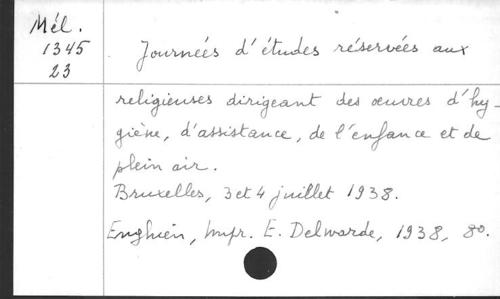 Mél.
1345
23
Journeés d'études réservées aux
religieuses dirigeant des œuvres d'hy_
giène, d'assistance, de l'enfance et de
plein air.
Bruxelles, 3 et 4 juillet 1938.
Enghien, Impr. E. Delwarde, 1938, 80.